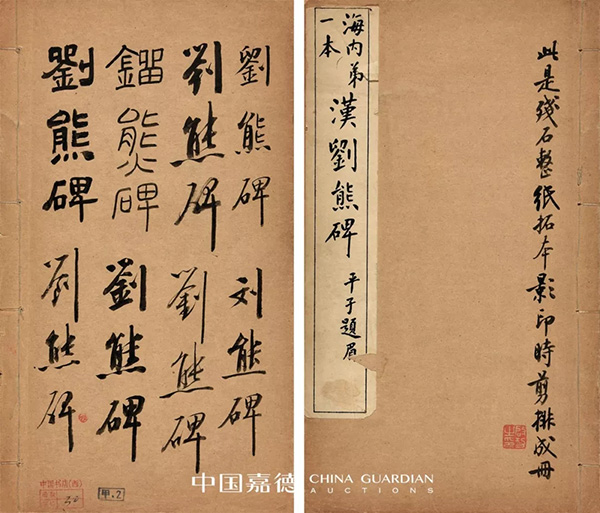 劉熊碑
劉熊碑
鐂熊碑
劉熊碑
刘熊碑
劉熊碑
劉熊碑
劉熊碑
中国书店(西)
甲.2
海内弟一本
漢劉熊碑
平子題眉
此是残石整紙拓本影印時剪排成冊
中国嘉德
CHINA GUARDIAN
AUCTIONS